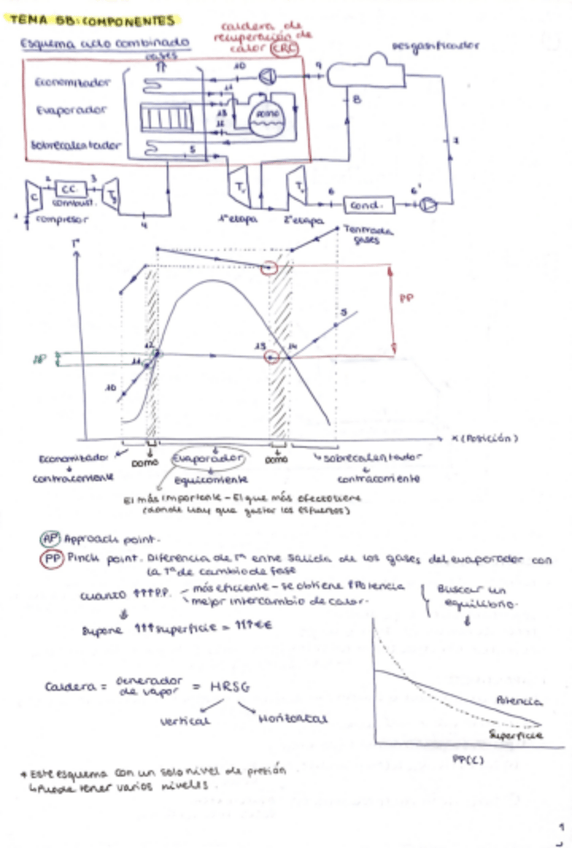 TEMA 5B: COMPONENTES
Esquema ciclo combinado
caldera de
recuperación de
calor (CRC)
gases
Desgasificador
Economizador
Evaporador
Sobrecalentador
Domo
10
9
11
8
7
5
1
2
3
4
C
C.C.
combust.
compresor
1ª etapa
2ª etapa
6
Cond.
6'
Tª
Tenmada
gases
PP
AP
12
11
10
13
14
5
x (Posición)
Economizador
Domo
Evaporador
Domo
Sobrecalentador
contracorriente
equicorriente
contracorriente
El más importante - El que más efecto tiene
(donde hay que gastar los esfuerzos)
AP Approach point.
PP Pinch point. Diferencia de Tª entre salida de los gases del evaporador con
la Tª de cambio de fase
cuanto ↑↑↑ P.P.
más eficiente - se obtiene ↑Potencia
mejor intercambio de calor.
Buscar un
equilibrio.
supone ↑↑↑ superficie = ↑↑↑€€
Caldera = Generador de vapor = HRSG
Vertical
Horizontal
Potencia
Superficie
PP(C)
* Este esquema con un solo nivel de presión
↳ Puede tener varios niveles.
1